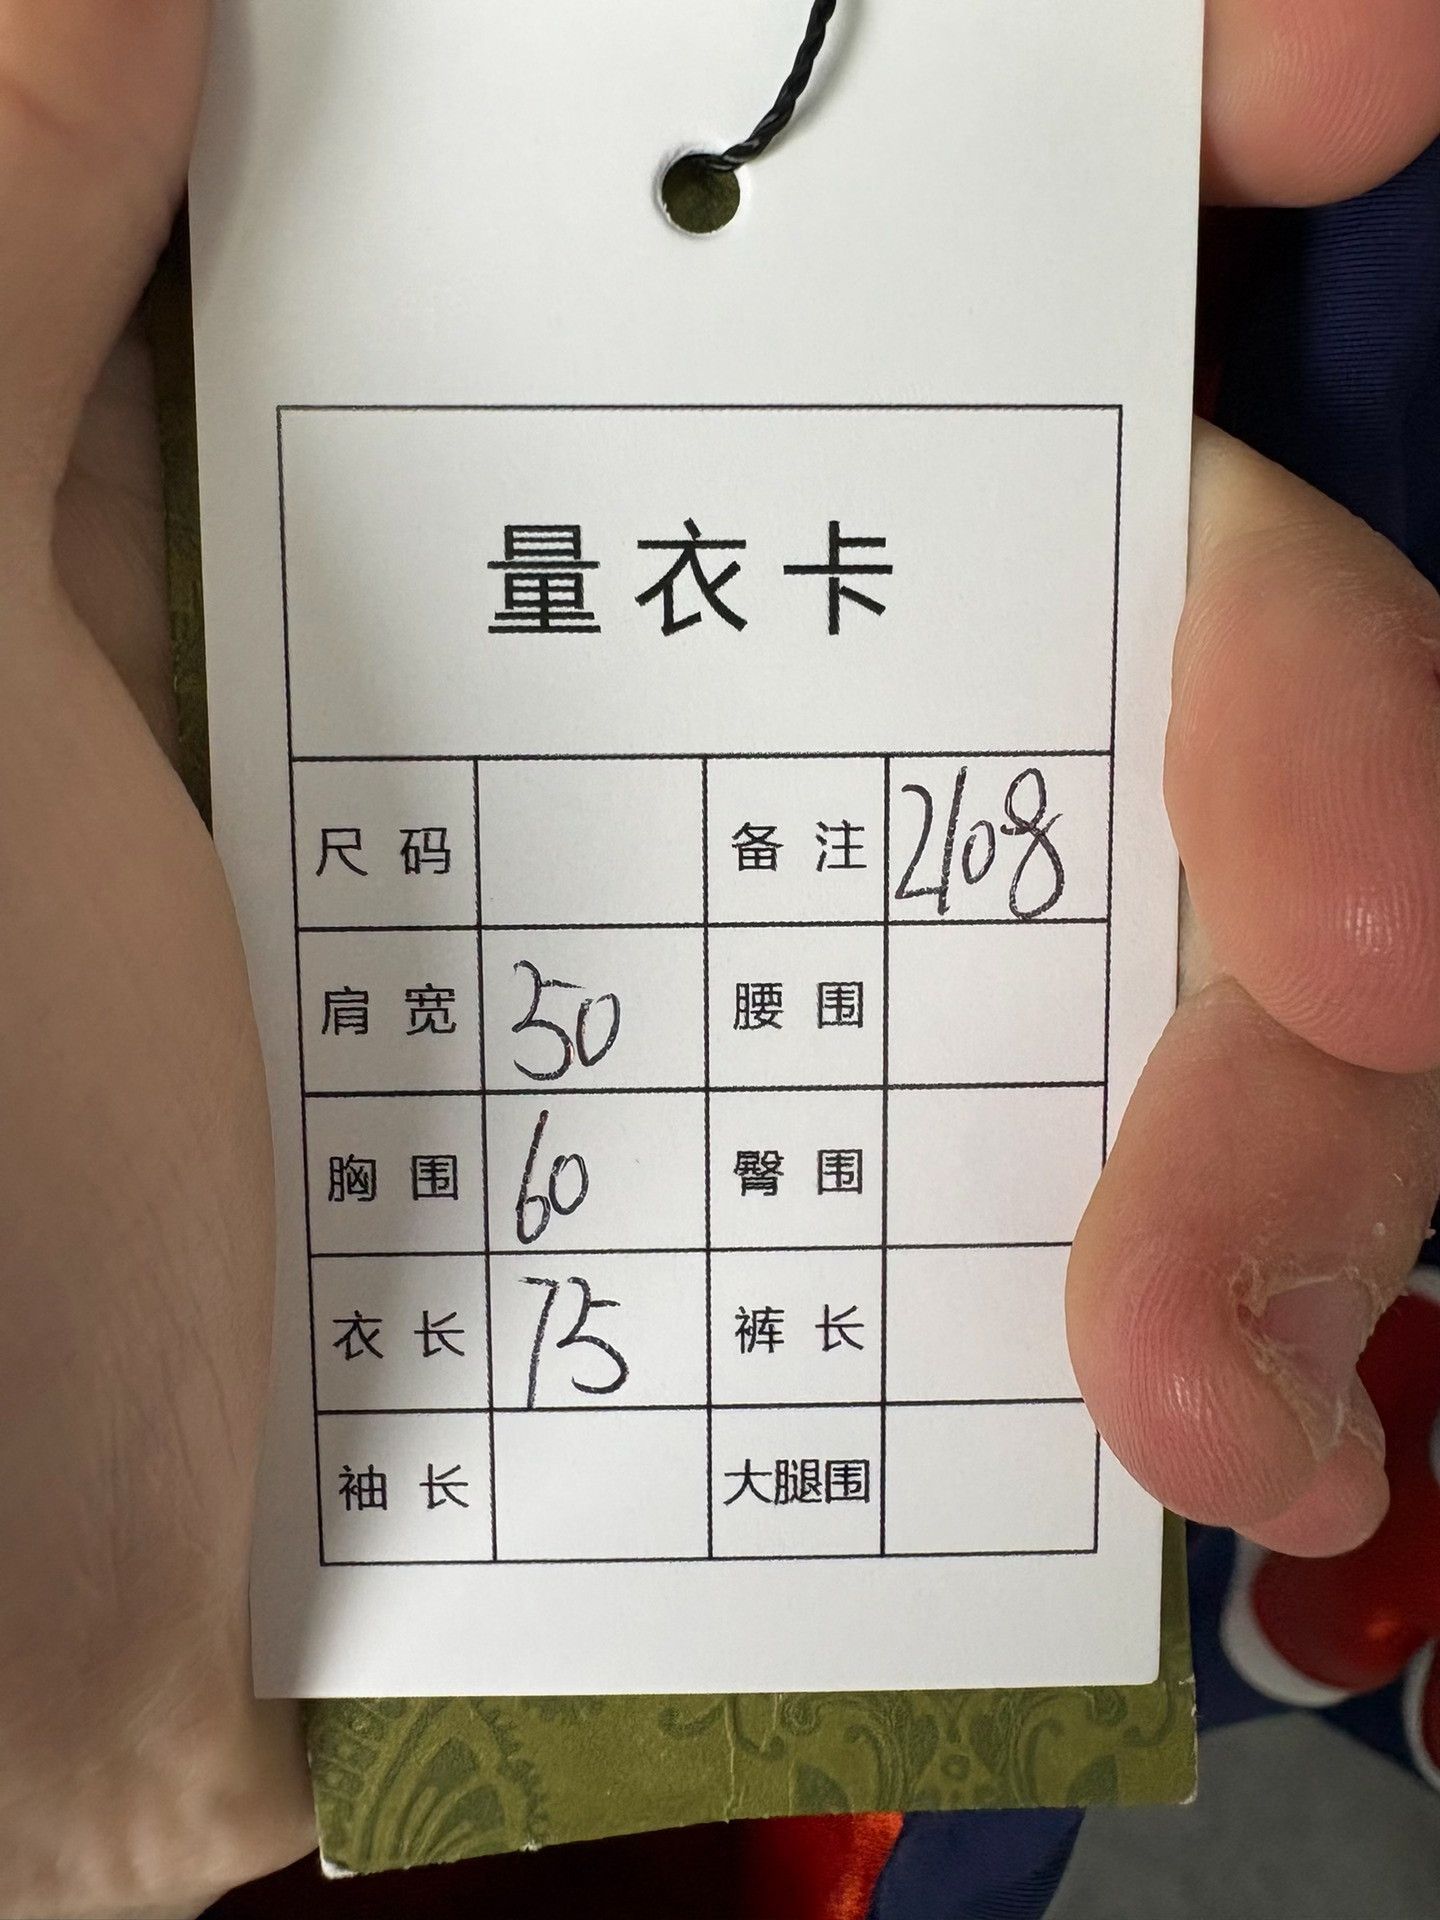 量衣卡
尺码 备注 2108
肩宽 50 腰围
胸围 60 臀围
衣长 75 裤长
袖长 大腿围